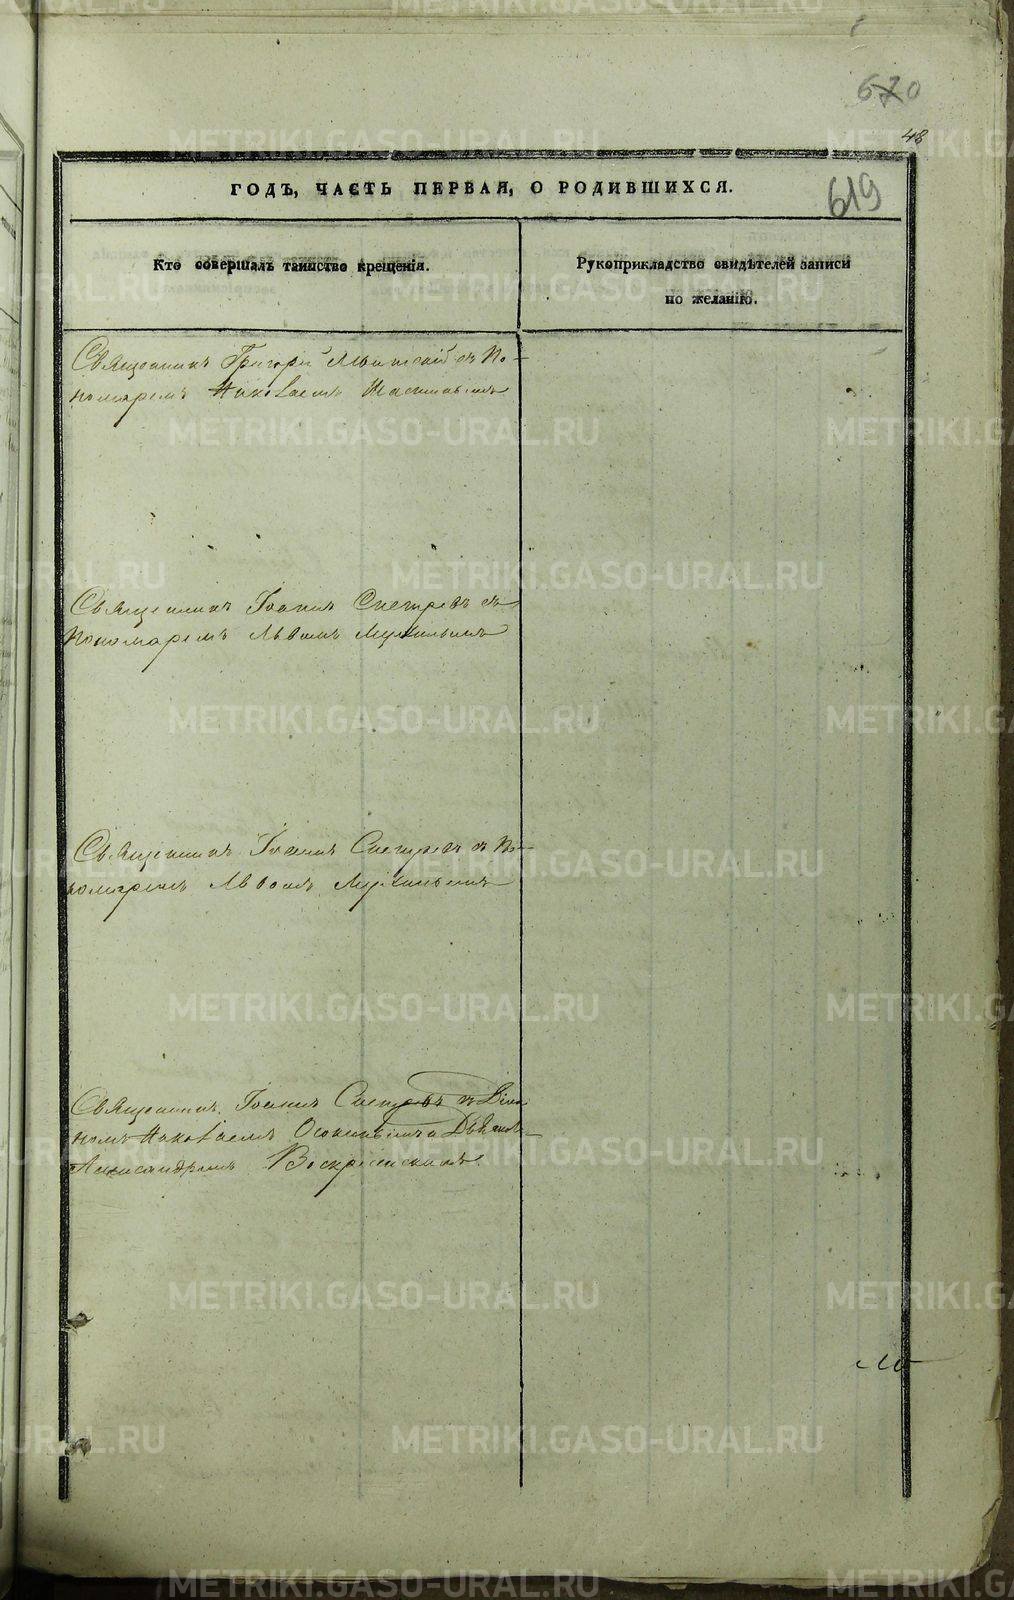 670
48
ГОДЪ, ЧАСТЬ ПЕРВАЯ, О РОДИВШИХСЯ.
619
Кто совершалъ таинство крещенія.
Рукоприкладство свидѣтелей записи
по желанію.
Священникъ Григорій съ По-
номаремъ Николаемъ
Священникъ Іоаннъ Снегиревъ съ
Пономаремъ Львомъ
Священникъ Іоаннъ Снегиревъ съ По-
номаремъ Львомъ
Священникъ Іоаннъ Снегиревъ съ Діако-
номъ Николаемъ Осокинымъ и Дьякомъ
Александромъ Воскресенскимъ
METRIKI.GASO-URAL.RU